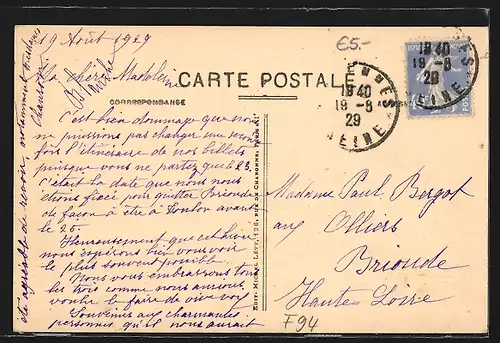 19 Août 1929
€5.-
Ma chère Madeleine
CARTE POSTALE
CORRESPONDANCE
19 40
19 -8
29
SEINE
19 40
19 -8
29
SEINE
C'est bien dommage que nous
ne puissions pas changer une seconde
fois l'itinéraire de nos billets
puisque vous ne partez que le 23.
C'était la date que nous nous
étions fixée pour quitter Brioude
de façon à être à Toulon avant
le 25.
Heureusement que cet hiver
nous espérons bien vous voir
le plus souvent possible.
Nous vous embrassons tous
les trois comme nous aurions
voulu le faire de vive voix
Souvenirs aux charmantes
personnes qu'il nous aurait
été agréable de revoir, notamment
EDIT. MICHEL LÉVY, 126, RUE DE CHARONNE, PARIS
Madame Paul Bergot
aux Olliers
Brioude
Haute Loire
F94